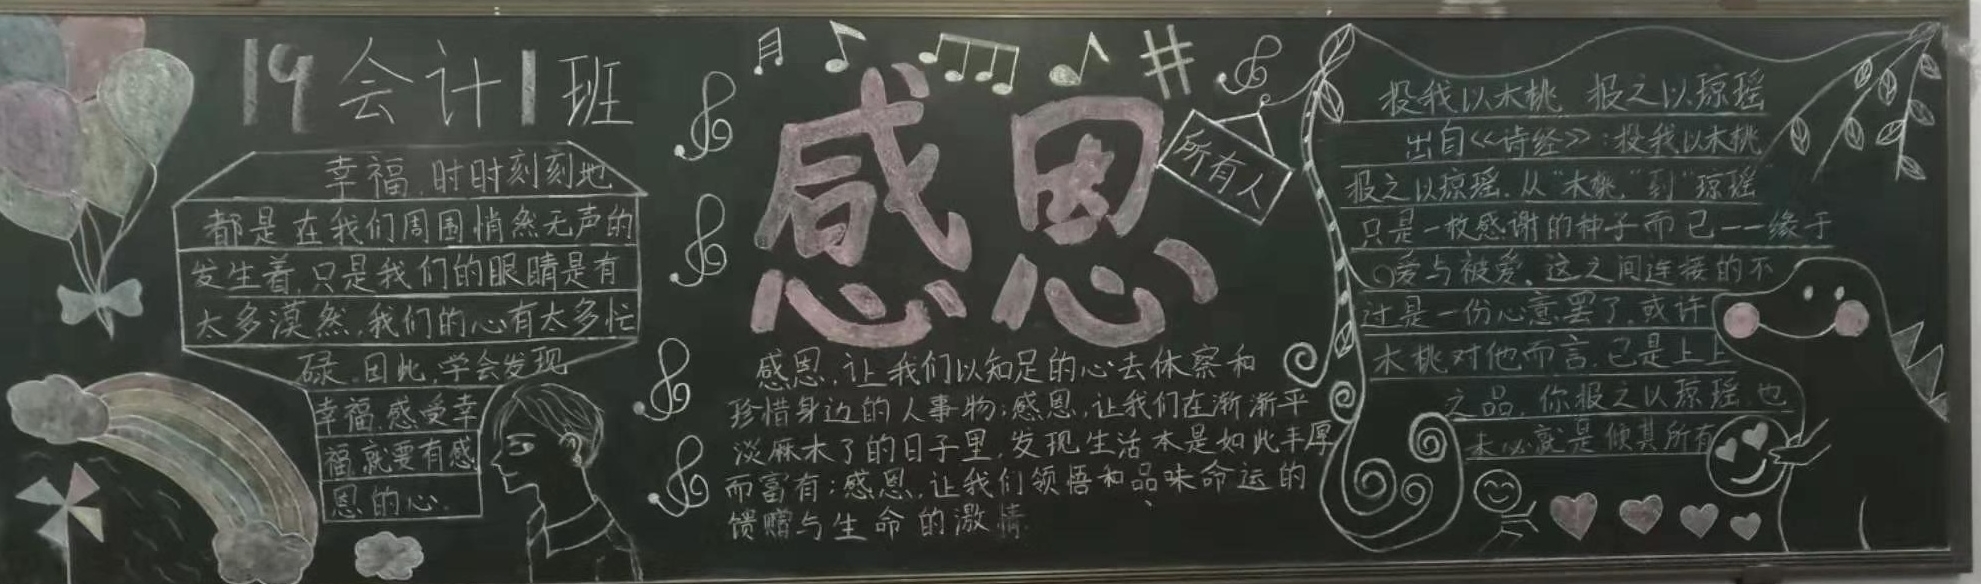 19会计1班
幸福,时时刻刻地
都是在我们周围悄然无声的
发生着,只是我们的眼睛是有
太多漠然,我们的心有太多忙
碌,因此,学会发现
幸福,感受幸
福就要有感
恩的心.
感恩
所有人
感恩,让我们以知足的心去体察和
珍惜身边的人事物;感恩,让我们在渐渐平
淡麻木了的日子里,发现生活本是如此丰厚
而富有;感恩,让我们领悟和品味命运的
馈赠与生命的激情.
投我以木桃 报之以琼瑶
出自《诗经》:投我以木桃
报之以琼瑶.从“木桃,”到“琼瑶
只是一枚感谢的种子而已——缘于
爱与被爱.这之间连接的不
过是一份心意罢了.或许
木桃对他而言.已是上上
之品.你报之以琼瑶.也
未必就是倾其所有